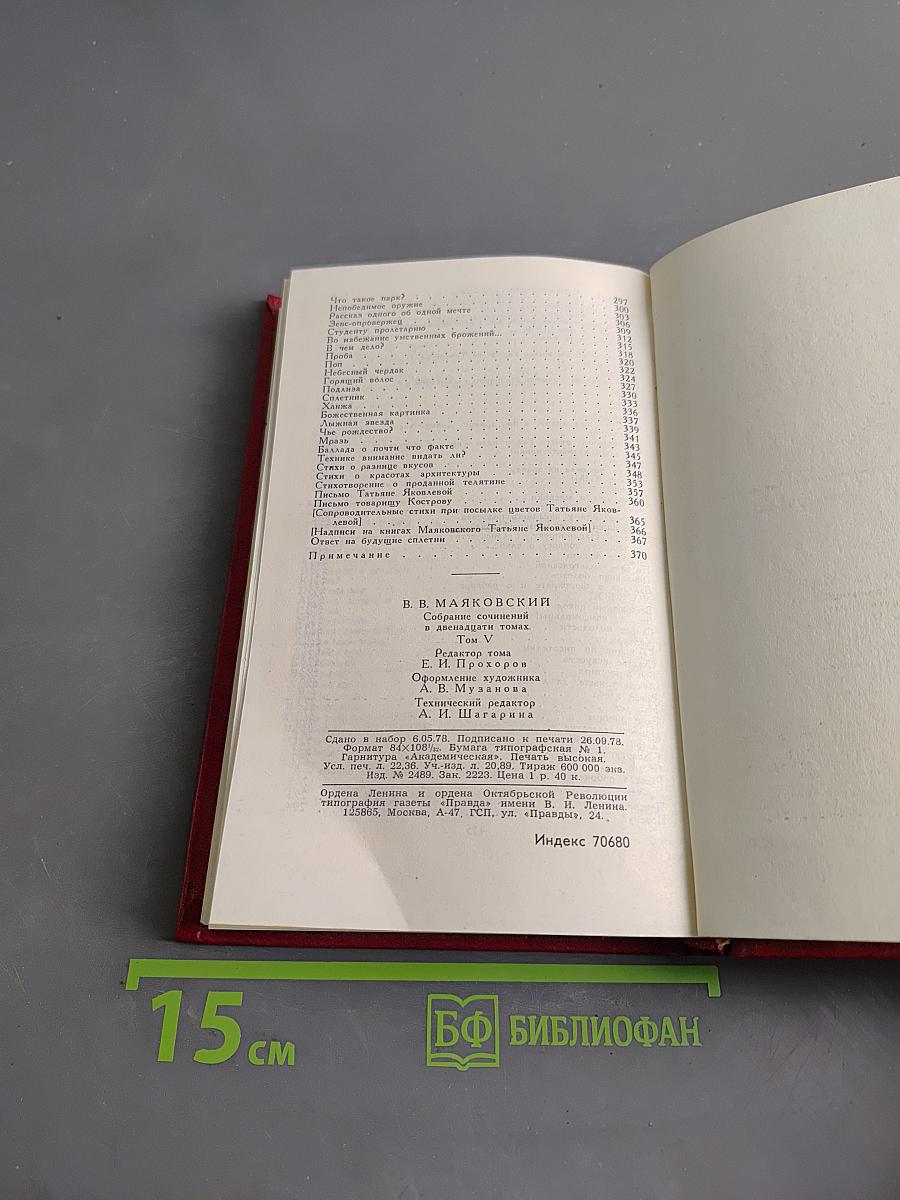 Что такое парк? . . . 297
Непобедимое оружие . . . 300
Рассказ одного об одной мечте . . . 303
Зевс-опровержец . . . 306
Студенту пролетарию . . . 309
Во избежание умственных брожений... . . . 312
В чем дело? . . . 315
Проба . . . 318
Поп . . . 320
Небесный чердак . . . 322
Горящий волос . . . 324
Подлиза . . . 327
Сплетник . . . 330
Ханжа . . . 333
Божественная картинка . . . 336
Лыжная звезда . . . 337
Чье рождество? . . . 339
Мразь . . . 341
Баллада о почти что факте . . . 343
Технике внимание видать ли? . . . 345
Стихи о разнице вкусов . . . 347
Стихи о красотах архитектуры . . . 348
Стихотворение о проданной телятине . . . 353
Письмо Татьяне Яковлевой . . . 357
Письмо товарищу Кострову . . . 360
[Сопроводительные стихи при посылке цветов Татьяне Яков-
левой] . . . 365
[Надписи на книгах Маяковского Татьяне Яковлевой] . . . 366
Ответ на будущие сплетни . . . 367
Примечание . . . 370
В. В. МАЯКОВСКИЙ
Собрание сочинений
в двенадцати томах.
Том V
Редактор тома
Е. И. Прохоров
Оформление художника
А. В. Музанова
Технический редактор
А. И. Шагарина
Сдано в набор 6.05.78. Подписано к печати 26.09.78.
Формат 84×108¹/₃₂. Бумага типографская № 1.
Гарнитура «Академическая». Печать высокая.
Усл. печ. л. 22,36. Уч.-изд. л. 20,89. Тираж 600 000 экз.
Изд. № 2489. Зак. 2223. Цена 1 р. 40 к.
Ордена Ленина и ордена Октябрьской Революции
типография газеты «Правда» имени В. И. Ленина.
125865, Москва, А-47, ГСП, ул. «Правды», 24.
Индекс 70680
15 см
БФ БИБЛИОФАН